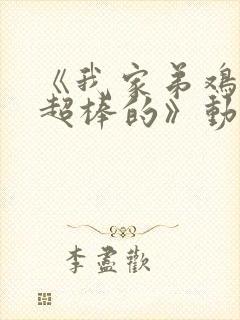 《我家弟鸡
超棒的》動
李盡歡